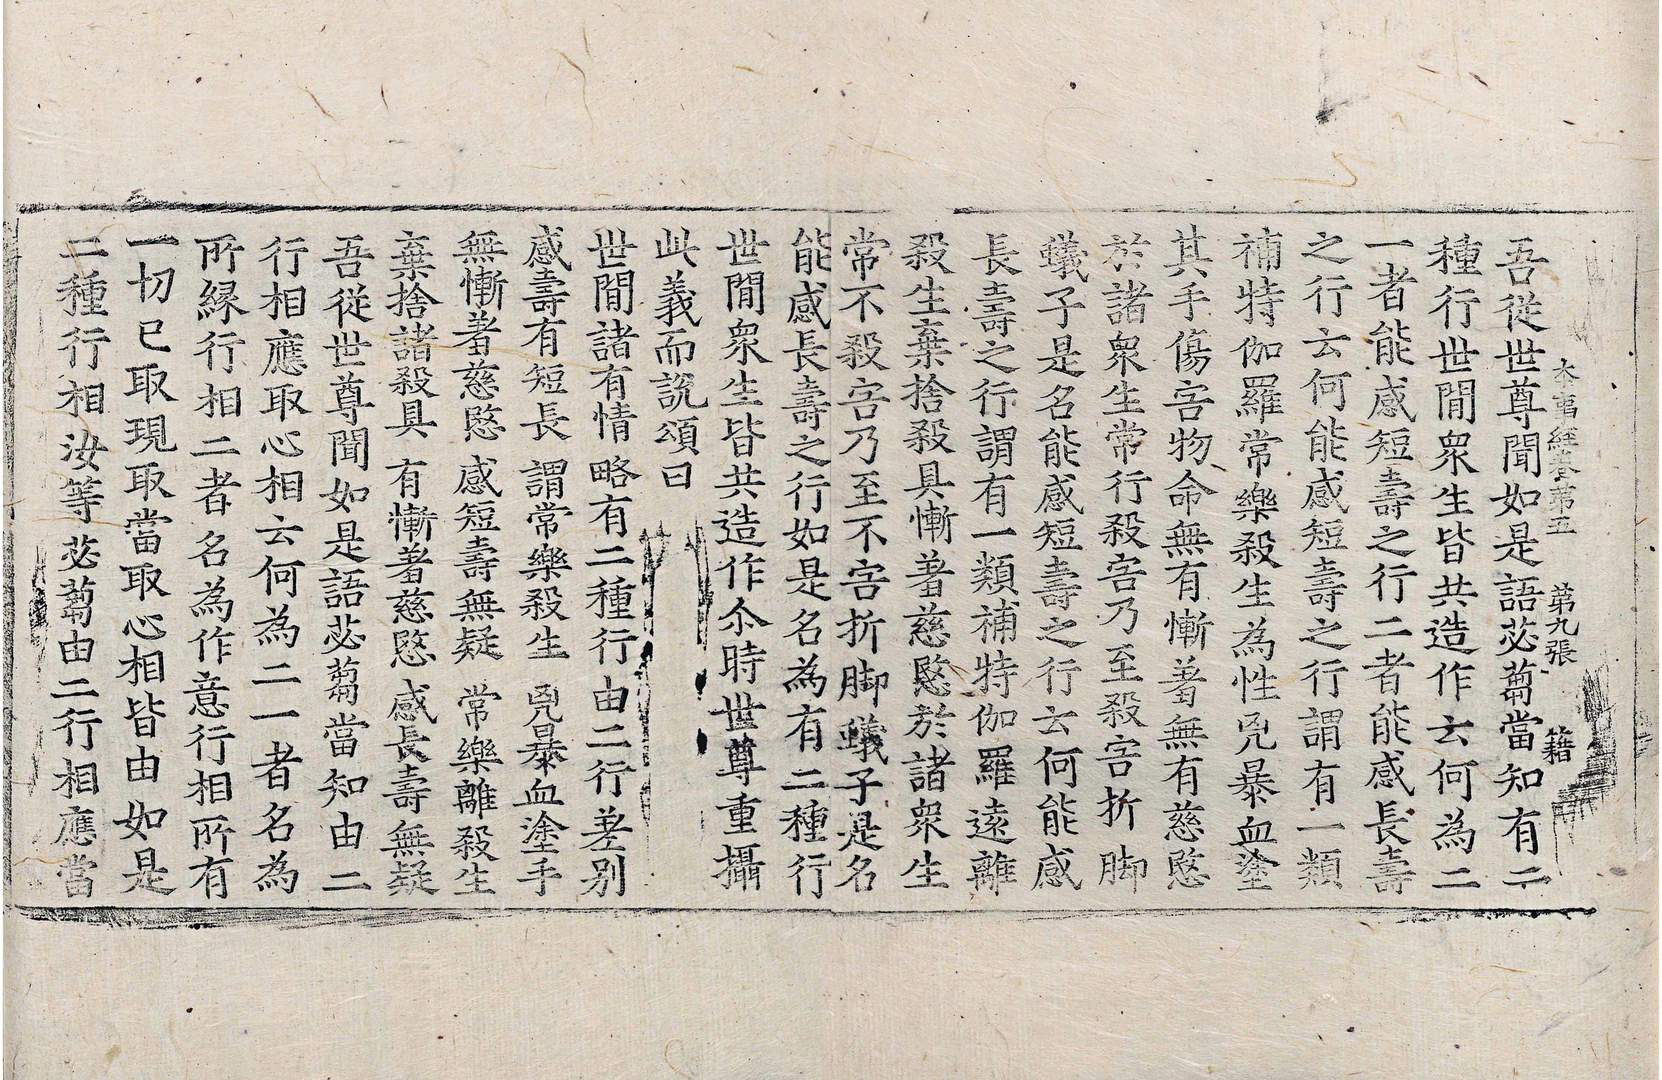 本事經卷第五 第九張 籍
吾從世尊聞如是語苾蒭當知有二
種行世閒衆生皆共造作云何為二
一者能感短壽之行二者能感長壽
之行云何能感短壽之行謂有一類
補特伽羅常樂殺生為性兇暴血塗
其手傷害物命無有慚著無有慈愍
於諸衆生常行殺害乃至殺害折脚
蟻子是名能感短壽之行云何能感
長壽之行謂有一類補特伽羅遠離
殺生棄捨殺具慚著慈愍於諸衆生
常不殺害乃至不害折脚蟻子是名
能感長壽之行如是名為有二種行
世閒衆生皆共造作尒時世尊重攝
此義而說頌曰
世閒諸有情 略有二種行 由二行差別
感壽有短長 謂常樂殺生 兇暴血塗手
無慚著慈愍 感短壽無疑 常樂離殺生
棄捨諸殺具 有慚著慈愍 感長壽無疑
吾從世尊聞如是語苾蒭當知由二
行相應取心相云何為二一者名為
所緣行相二者名為作意行相所有
一切已取現取當取心相皆由如是
二種行相汝等苾蒭由二行相應當